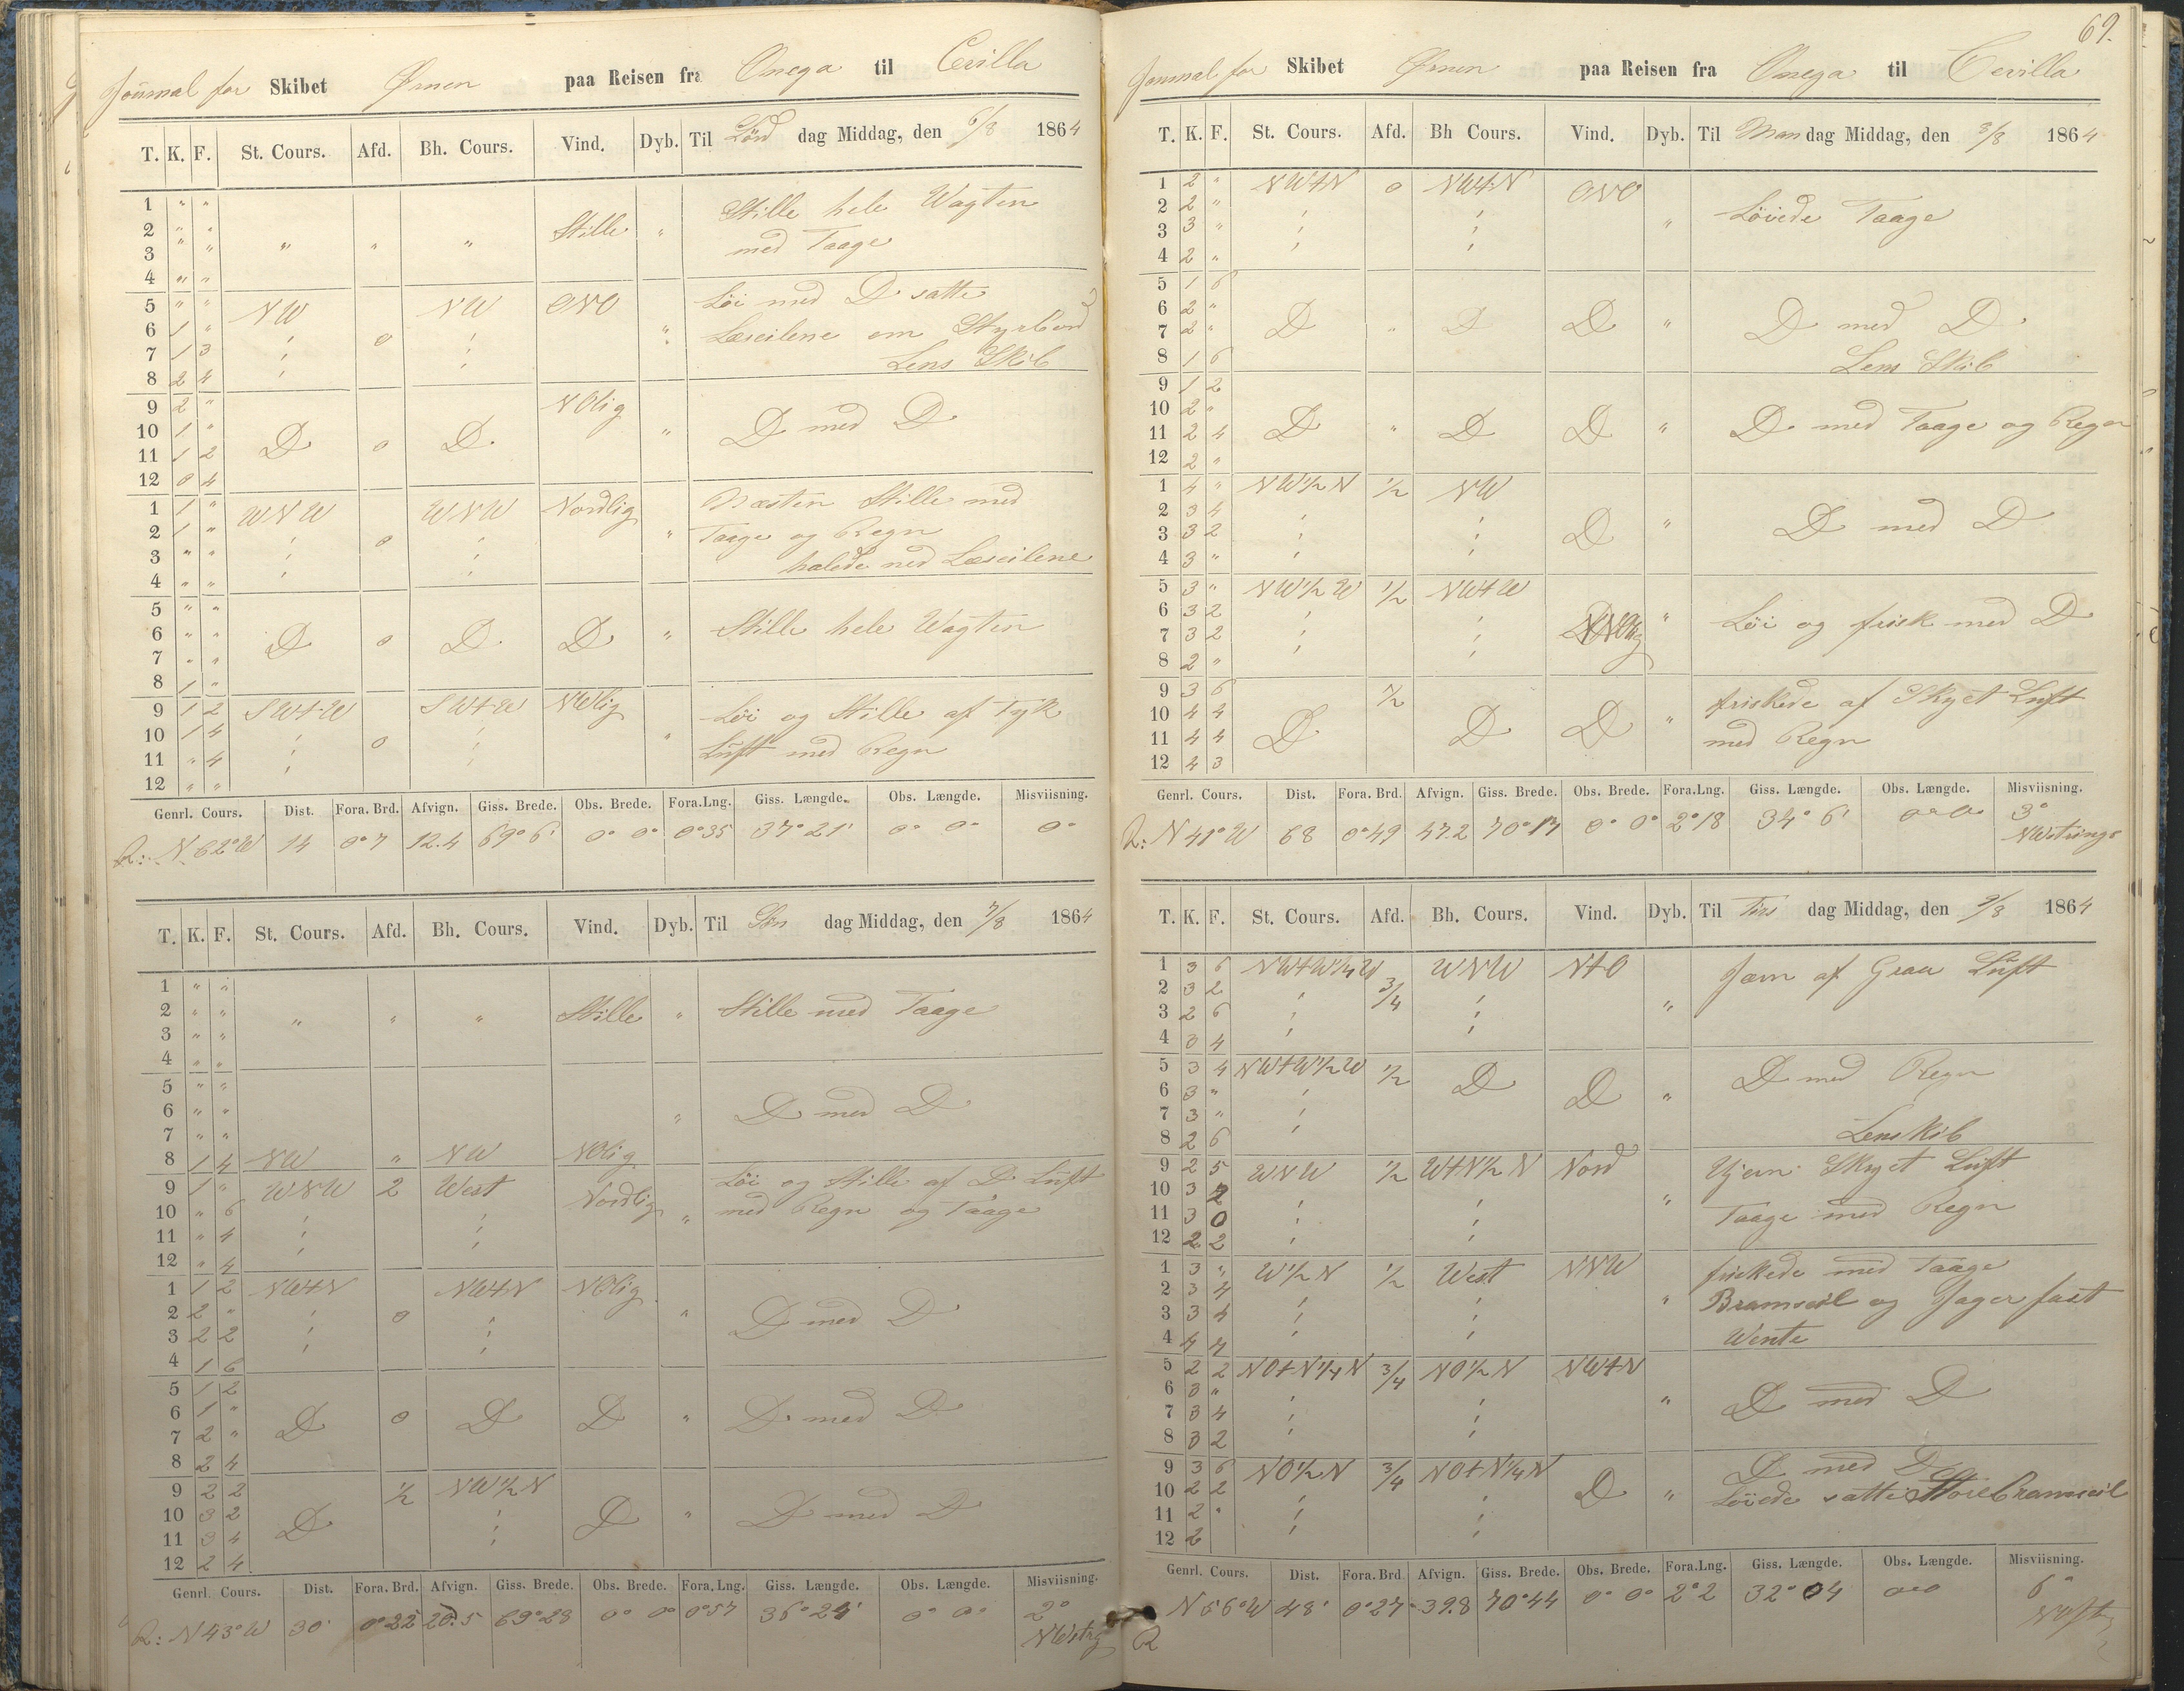 Journal for Skibet Ørnen paa Reisen fra Onega til Cevilla
T. K. F. St. Cours. Afd. Bh. Cours. Vind. Dyb. Til Lørd dag Middag, den 6/8 1864
1 " " Stille hele Wagten
2 " " Stille "
3 " " " " " med Taage
4 " "
5 " " NW NW ONO Löi med D satte
6 1 " ¦ o ¦ " Læseilene om Styrbord
7 1 3 ¦ ¦ Lens Skib
8 2 4 ¦
9 2 " NOlig
10 1 " D o D D med D
11 1 2 "
12 0 4
1 1 " WNW WNW Nordlig Næsten Stille med
2 1 " ¦ o ¦ " Taage og Regn
3 " " ¦ ¦ halede ned Læseilene
4 " " ¦
5 " "
6 " " D o D D " Stille hele Wagten
7 " "
8 1 "
9 1 2 SW+W SW+W NWlig Löi og Stille af Tyk
10 1 4 ¦ o ¦ " Luft med Regn
11 " 4 ¦ ¦
12 " "
Genrl. Cours. Dist. Fora. Brd. Afvign. Giss. Brede. Obs. Brede. Fora.Lng. Giss. Længde. Obs. Længde. Misviisning.
R: N 62° W 14 0°7 12.4 69°6' 0° 0° 0°35 37°21' 0° 0° 0°
T. K. F. St. Cours. Afd. Bh. Cours. Vind. Dyb. Til Søn dag Middag, den 7/8 1864
1 " "
2 " " " " " Stille " Stille med Taage
3 " "
4 " "
5 " "
6 " " " D med D
7 " "
8 1 4 NW " NW NOlig
9 1 " WNW 2 West Nordlig Löi og Stille af D Luft
10 " 6 ¦ ¦ " med Regn og Taage
11 " 4 ¦ ¦
12 " 4
1 1 2 NW+N NW+N NOlig
2 2 " ¦ o ¦ " D med D
3 2 2 ¦ ¦
4 1 6
5 1 2
6 1 " D o D D " D med D
7 2 "
8 2 4
9 2 2 1/2 NW1/2N
10 3 2 D ¦ D " D med D
11 3 4 ¦
12 2 4
Genrl. Cours. Dist. Fora. Brd. Afvign. Giss. Brede. Obs. Brede. Fora.Lng. Giss. Længde. Obs. Længde. Misviisning.
R: N 43° W 30' 0°22 20.5 69°28 0° 0° 0°57 36°24' 0° 0° 2°
NWstrg
69.
Journal for Skibet Ørnen paa Reisen fra Onega til Cevilla
T. K. F. St. Cours. Afd. Bh Cours. Vind. Dyb. Til Man dag Middag, den 8/8 1864
1 2 " NW+N o NW+N ONO
2 2 " ¦ ¦ " Löiede Taage
3 3 " ¦ ¦
4 2 "
5 1 6
6 2 " D " D D " D med D
7 2 "
8 1 6 Lens Skib
9 1 2
10 2 " D " D D " D med Taage og Regn
11 2 4
12 2 "
1 4 " NW1/2N 1/2 NW
2 3 4 ¦ ¦ D " D med D
3 3 2 ¦ ¦
4 3 "
5 3 " NW1/2W 1/2 NW+W
6 3 2 ¦ ¦ " Löi og frisk med D
7 3 2 ¦ ¦
8 2 "
9 3 6 1/2 friskede af Skyet Luft
10 4 4 D D D " med Regn
11 4 4
12 4 3
Genrl. Cours. Dist. Fora. Brd. Afvign. Giss. Brede. Obs. Brede. Fora.Lng. Giss. Længde. Obs. Længde. Misviisning.
R: N 41° W 68 0°49 47.2 70°17 0° 0° 2°18 34°6' 0° 0° 3°
NWstrings
T. K. F. St. Cours. Afd. Bh. Cours. Vind. Dyb. Til Tirs dag Middag, den 9/8 1864
1 3 6 NW+W1/4W 3/4 WNW N+O Jævn af Graa Luft
2 3 2 ¦ ¦ "
3 2 6 ¦ ¦
4 3 4
5 3 4 NW+W1/2W 1/2 D D " D med Regn
6 3 " ¦
7 3 " ¦
8 2 6 Lens kib
9 2 5 WNW 1/2 W+N1/2N Nord Ujevn Skyet Luft
10 3 2 ¦ ¦ " Taage med Regn
11 3 0 ¦ ¦
12 2 2 ¦ ¦
1 3 " W1/2N 1/2 West NNW friskede med Taage
2 3 4 ¦ ¦ " Bramseil og Jager fast
3 3 4 ¦ ¦ Wente
4 4 4
5 2 2 NO+N1/4N 3/4 NO1/2N NW+N
6 3 " ¦ ¦ " D med D
7 3 4 ¦ ¦
8 3 2
9 3 6 NO1/2N 3/4 NO+N1/4N D med D
10 2 2 ¦ ¦ D " Löiede satte Storebramseil
11 2 " ¦ ¦
12 2
Genrl. Cours. Dist. Fora. Brd Afvign. Giss. Brede. Obs. Brede. Fora.Lng. Giss. Længde. Obs. Længde. Misviisning.
R N 56° W 48' 0°27 39.8 70°44 0° 0° 2°2 32°04 0° 0 6°